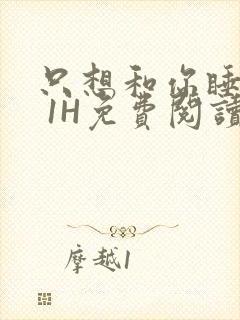 只想和你睡
1H免費閱讀
摩越1